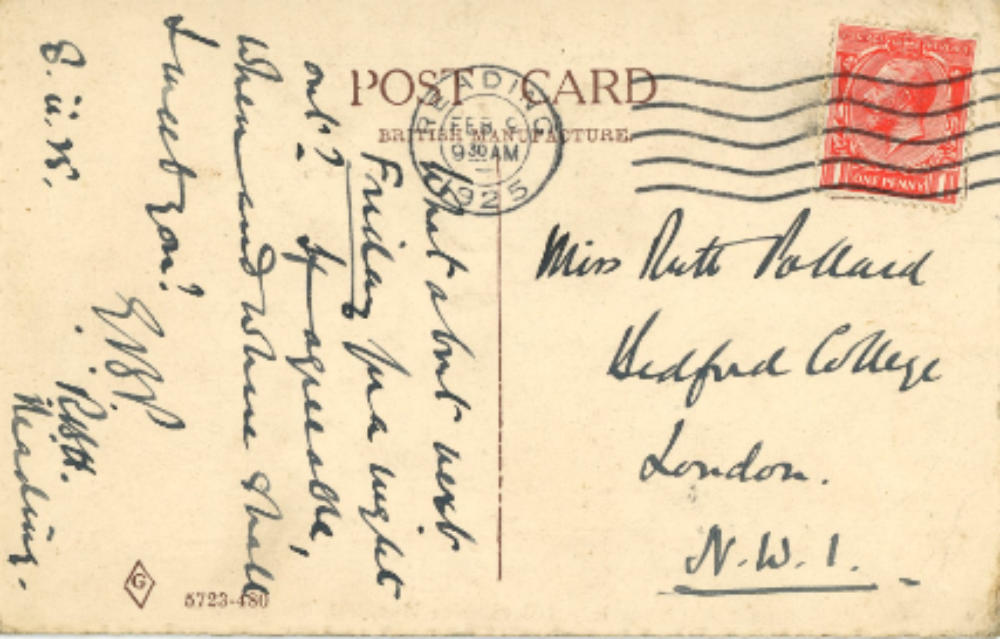 POST CARD
BRITISH MANUFACTURE.
READING
FEB 9
9 30 AM
1925
ONE PENNY
What about next
Friday for a night
out? If agreeable,
When and where shall
I meet you?
R.B.H.
Reading.
Miss Ruth Pollard
Bedford College
London.
N.W.1.
G
5723-480